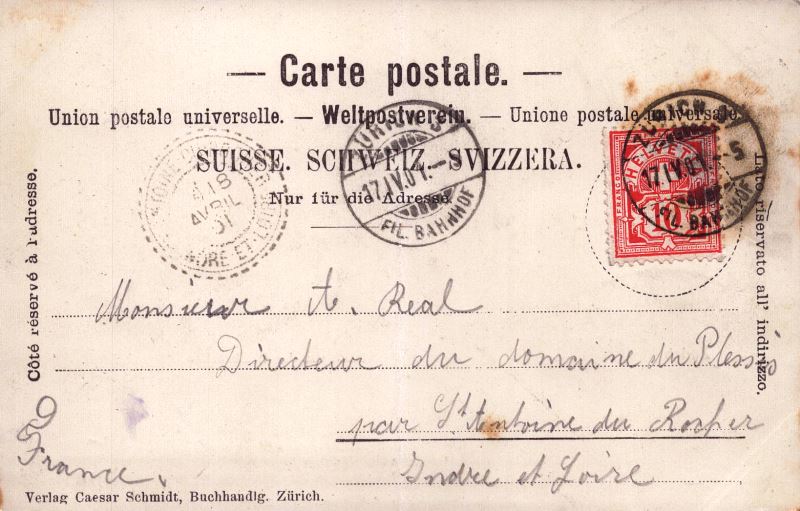 — Carte postale. —
Union postale universelle. — Weltpostverein. — Unione postale universale.
SUISSE. SCHWEIZ. SVIZZERA.
Nur für die Adresse.
Côté réservé à l'adresse.
Lato riservato all' indirizzo.
18
AVRIL
01
INDRE-ET-LOIRE
ZÜRICH
17.IV.01.-
FIL. BAHNHOF
ZÜRICH
17.IV.01.-5
FIL. BAHNHOF
HELVETIA
FRANCO
10
Monsieur A. Real
Directeur du domaine du Plessis
par St Antoine du Rocher
Indre et Loire
France.
Verlag Caesar Schmidt, Buchhandlg. Zürich.